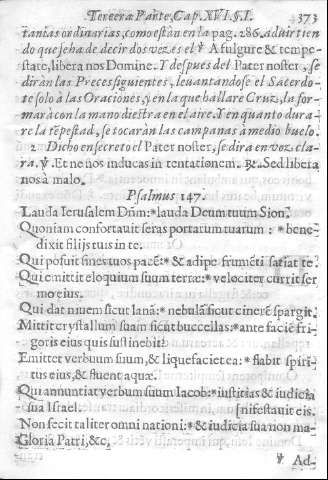 Tercera Parte, Cap. XVI. §. I. 373
tanias ordinarias, como estàn en la pag. 286. aduirtien
do que se ha de decir dos vezes el ℣ A fulgure & tempe-
state, libera nos Domine. Y despues del Pater noster, se
diràn las Preces siguientes, leuantandose el Sacerdo-
te solo à las Oraciones, y en la que hallare Cruz, la for-
marà con la mano diestra en el aire. Y en quanto dura
re la tẽpestad, se tocaràn las campanas à medio buelo.
2 Dicho en secreto el Pater noster, se dira en voz cla-
ra. ℣. Et ne nos inducas in tentationem. ℟. Sed libera
nos à malo.
Psalmus 147.
Lauda Ierusalem Dñm: * lauda Deum tuum Sion.
Quoniam confortauit seras portarum tuarum: * bene-
dixit filijs tuis in te.
Qui posuit fines tuos pacẽ: * & adipe frumẽti satiat te.
Qui emittit eloquium suum terræ: * velociter currit ser
mo eius.
Qui dat niuem sicut lanã: * nebulã sicut cinerẽ spargit.
Mittit crystallum suam sicut buccellas: * ante faciẽ fri-
goris eius quis sustinebit?
Emittet verbum suum, & liquefaciet ea: * flabit spiri-
tus eius, & fluent aquæ.
Qui annuntiat verbum suum Iacob: * iustitias & iudicia
sua Israel. [nifestauit eis.
Non fecit taliter omni nationi: * & iudicia sua non ma-
Gloria Patri, &c.
℣ Ad-